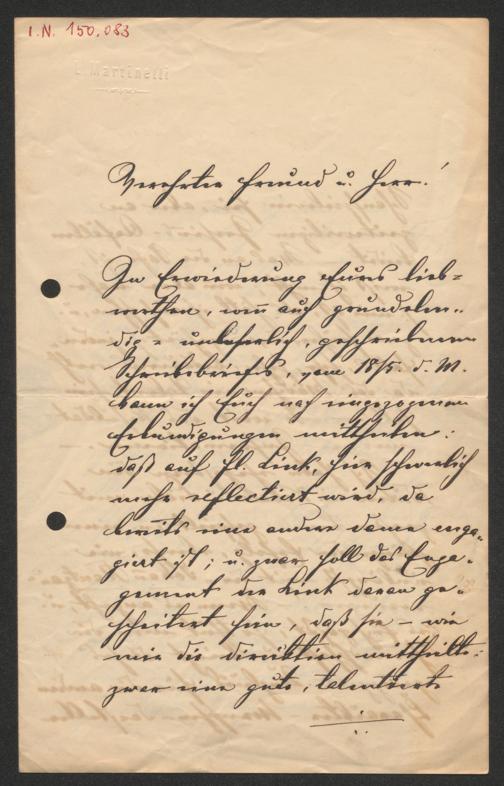 I.N. 150.083
L. Martinelli
Verehrter Freund u. Herr!
In Erwiederung Eures lieb=
werthen, wenn auch grundelen=
dig = unleserlich, geschriebenen
Schreibebriefs, vom 18/5. d. M.
kann ich Euch nach eingezogenen
Erkundigungen mittheilen:
daß auf Fl. Link, hier schwerlich
mehr reflectiert wird, da
bereits eine andere Dame enga=
giert ist; u. zwar soll das Enga=
gement der Link daran ge=
scheitert sein, daß sie – wie
mir die Direktion mittheilte:
zwar eine gute, talentierte